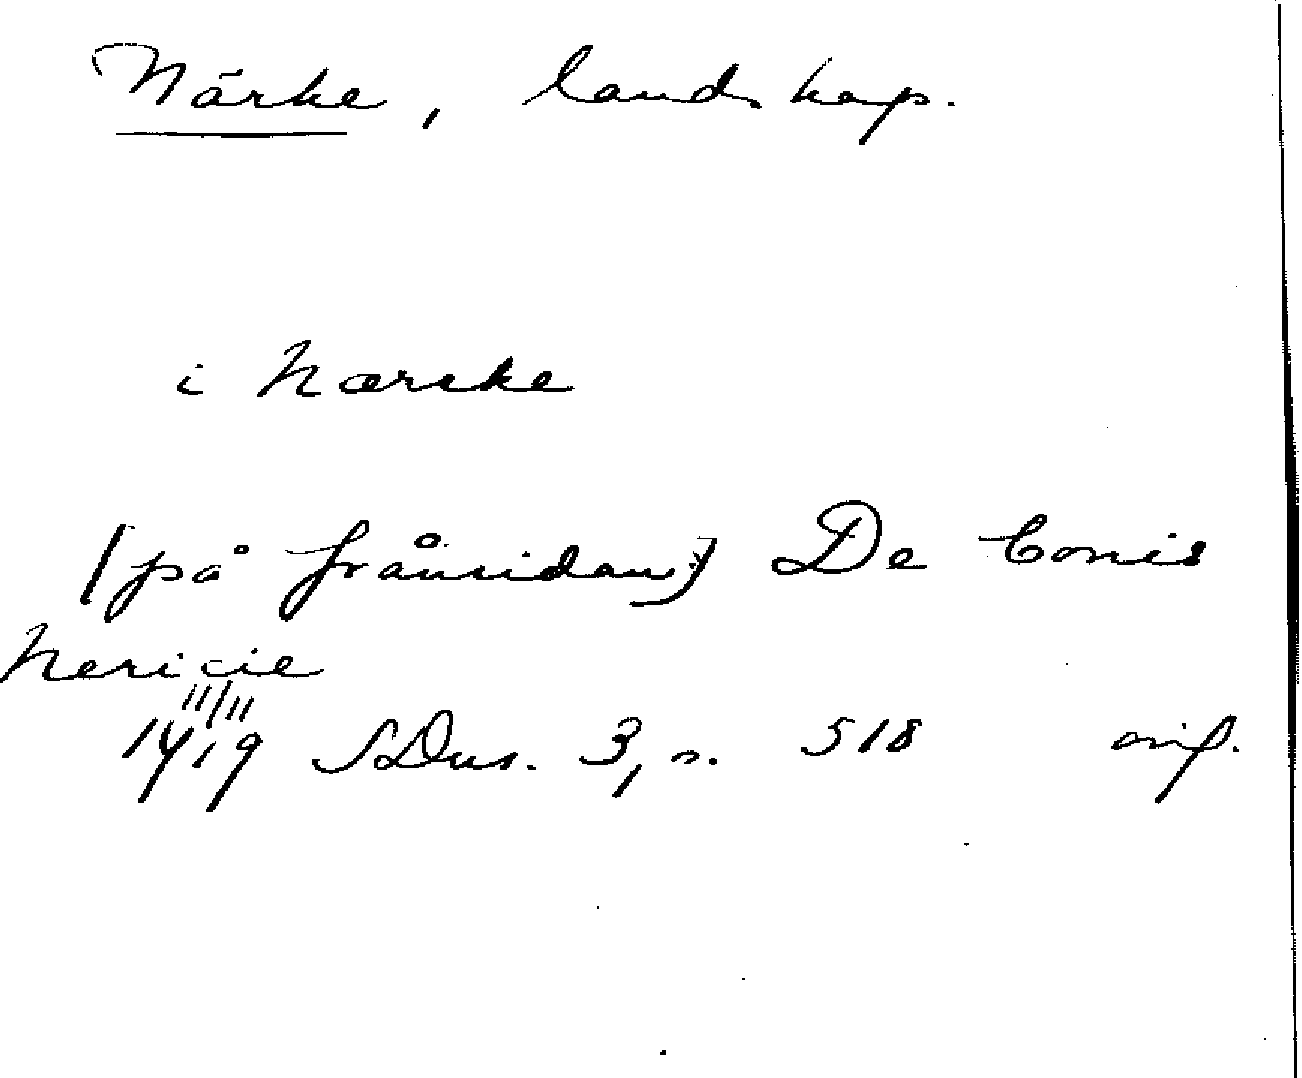 Närke, landskap.
i Nærcke
(på frånsidan) De bonis
Nericie
11/11
1419 SDns. 3, s. 518 orig.